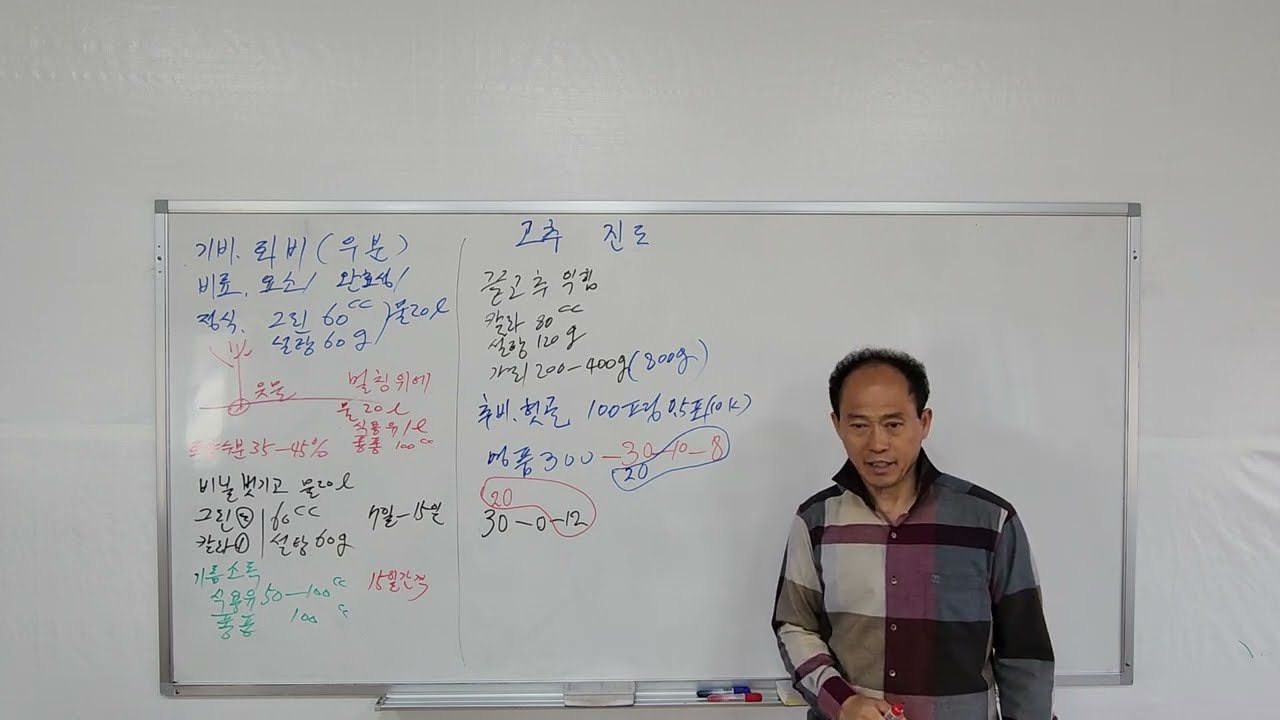 기비. 퇴비(우분)
비료. 요소/ 완효성/
정식. 그린 60cc
설탕 60g
물20ℓ
웃물
멀칭위에
물 20ℓ
식용유 1ℓ
퐁퐁 100cc
수분 35-45%
비닐벗기고 물20ℓ
그린② 60cc
칼라① 설탕 60g
7일-15일
기름소독
식용유 50-100cc
퐁퐁 100cc
15일간격
고추 진도
끝고추 익힘
칼라 80cc
설탕 120g
가리 200-400g(800g)
추비. 헛골 100평당 0.5포(10K)
명품300 -30-10-8
20
20
30-0-12